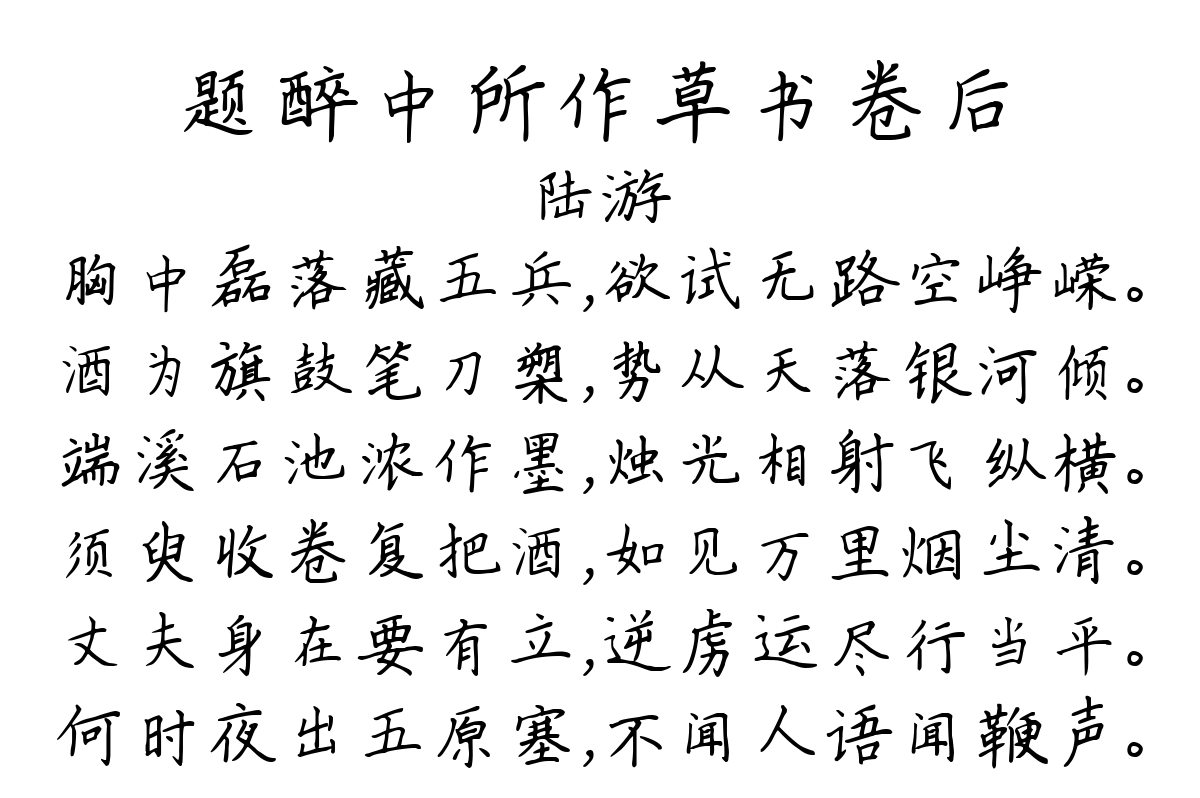 题醉中所作草书卷后
陆游
胸中磊落藏五兵,欲试无路空峥嵘。
酒为旗鼓笔刀槊,势从天落银河倾。
端溪石池浓作墨,烛光相射飞纵横。
须臾收卷复把酒,如见万里烟尘清。
丈夫身在要有立,逆虏运尽行当平。
何时夜出五原塞,不闻人语闻鞭声。